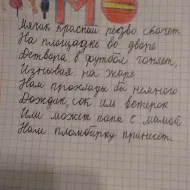 МО
Мячик красный резво скачет
На площадке во дворе
Детвора в футбол гоняет,
Изнывая на жаре
Нам прохлады бы немного
Дождик, сок им ветерок
Или может папа с мамой
Нам пломбирку принесёт.